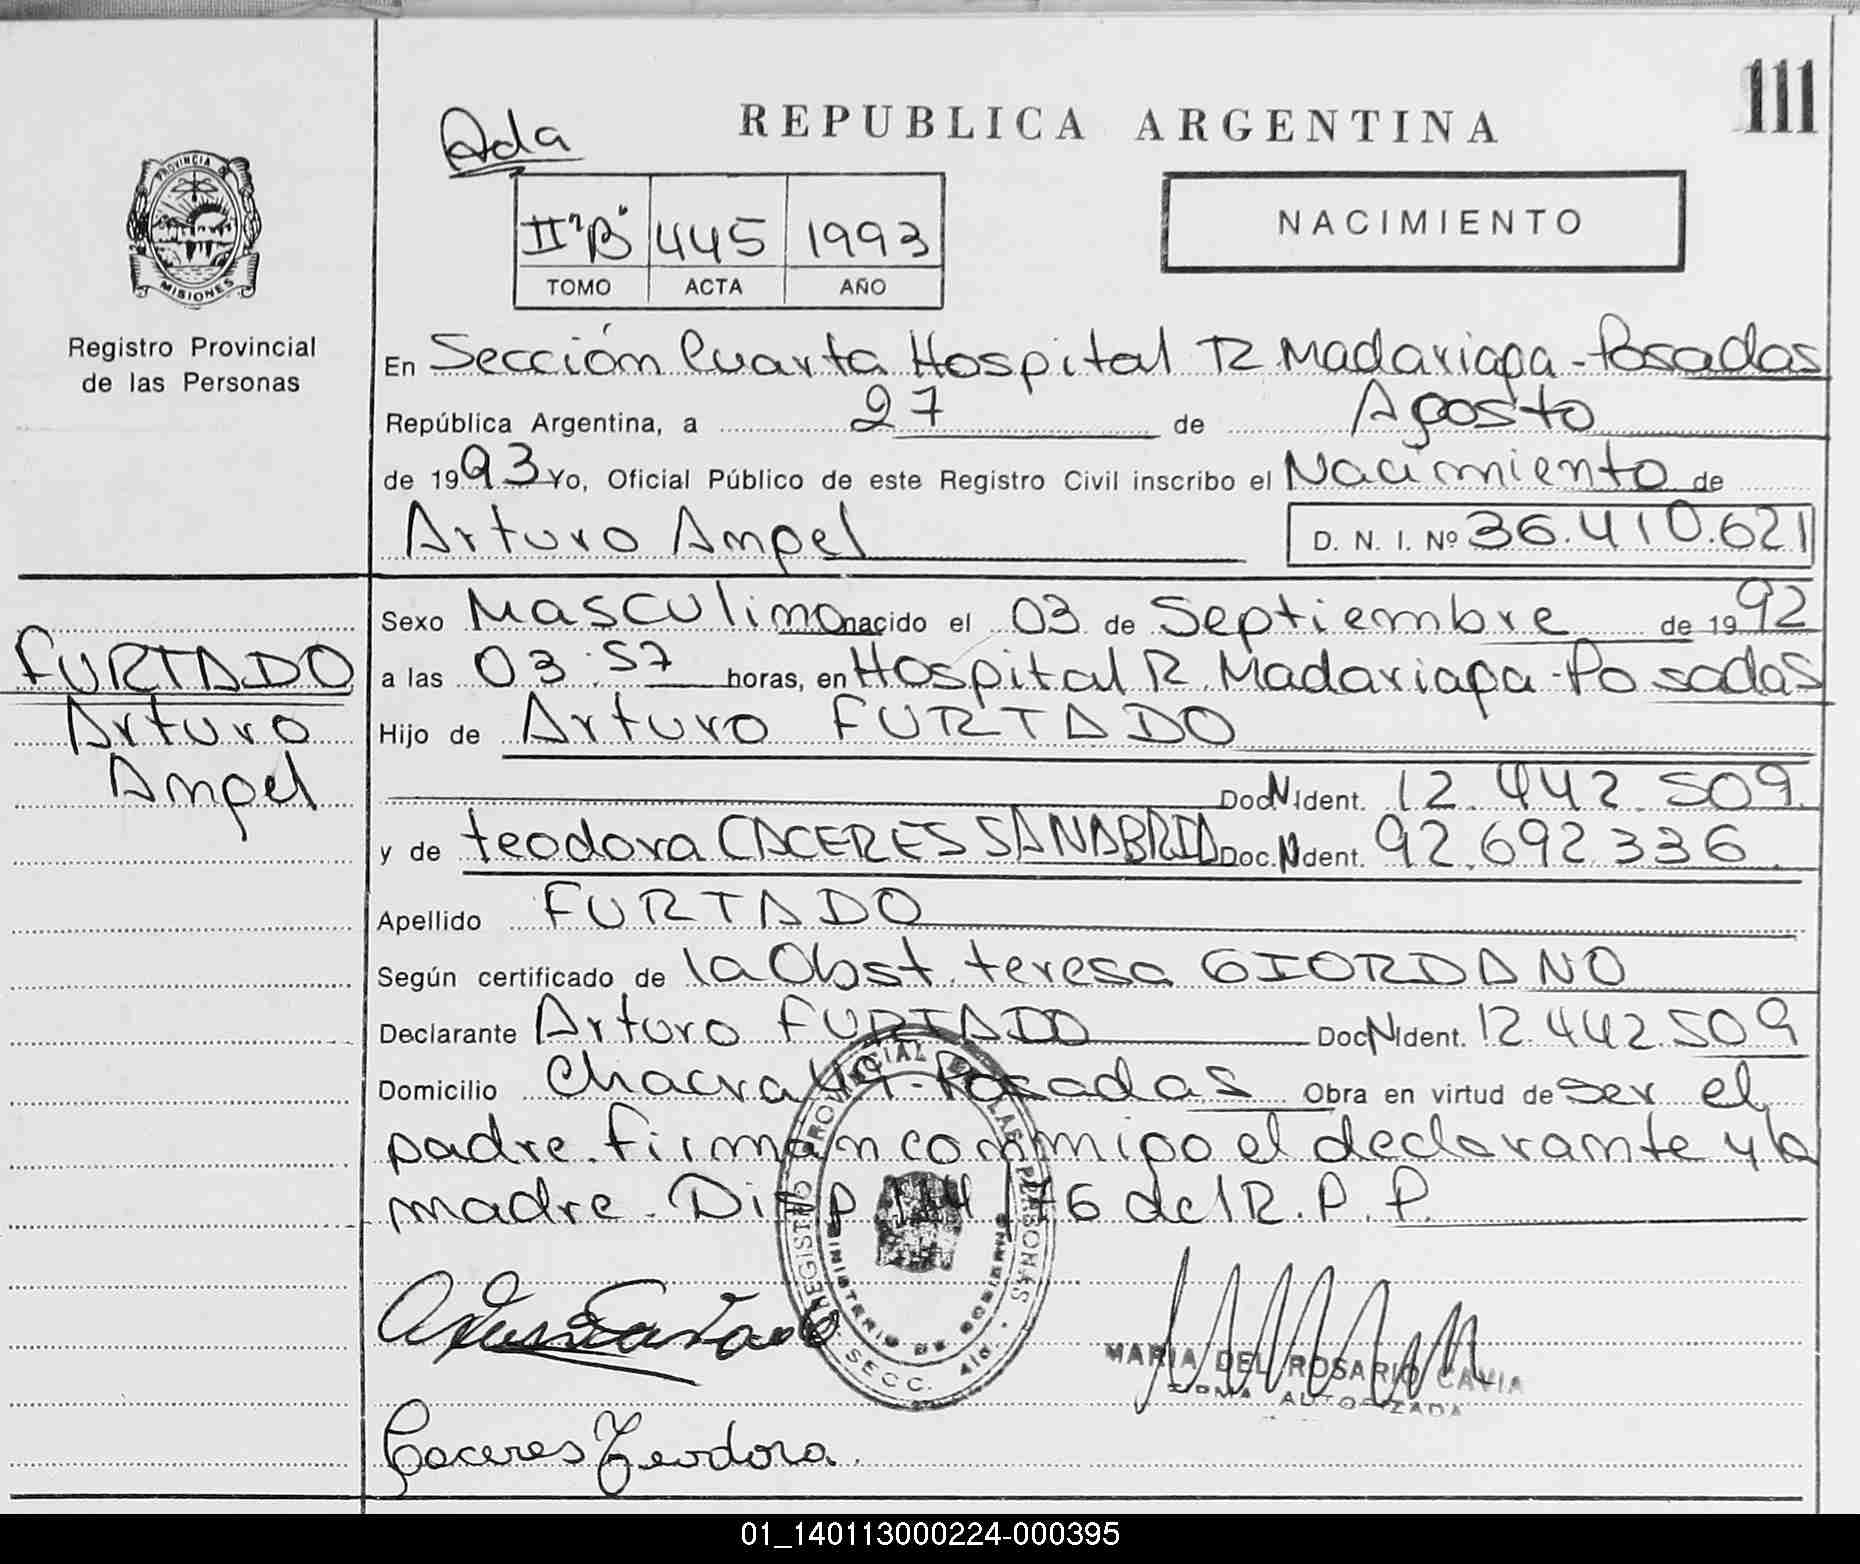 111
Ada
REPUBLICA ARGENTINA
PROVINCIA DE
MISIONES
II"B" 445 1993
TOMO ACTA AÑO
NACIMIENTO
Registro Provincial
de las Personas
En Sección Cuarta Hospital R Madariaga - Posadas
República Argentina, a 27 de Agosto
de 1993 Yo, Oficial Público de este Registro Civil inscribo el Nacimiento de
Arturo Angel D. N. I. Nº 36.410.621
Sexo Masculino nacido el 03 de Septiembre de 1992
FURTADO
Arturo
Angel
a las 03:57 horas, en Hospital R. Madariaga - Posadas
Hijo de Arturo FURTADO
Doc N Ident. 12.442.509
y de teodora CACERES SANABRIA Doc. N Ident. 92.692.336
Apellido FURTADO
Según certificado de la Obst. teresa GIORDANO
Declarante Arturo FURTADO Doc N Ident. 12.442.509
Domicilio Chacra 49 - Posadas Obra en virtud de ser el
padre. firman conmigo el declarante y la
madre. Disp 114/76 del R. P. P.
REGISTRO PROVINCIAL DE LAS PERSONAS
MINISTERIO DE GOBIERNO
SECC. 4ta.
MARIA DEL ROSARIO CAVIA
FIRMA AUTORIZADA
Caceres Teodora.
01_140113000224-000395